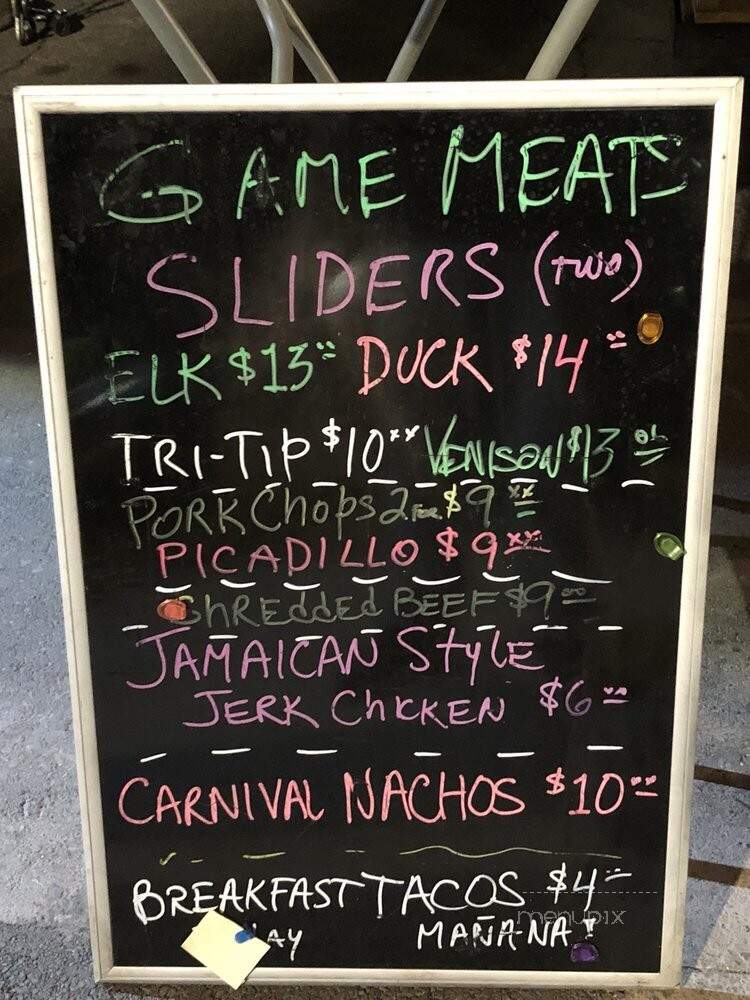 GAME MEATS
SLIDERS (TWO)
ELK $13 DUCK $14
TRI-TIP $10xx VENISON $13
PORK CHOPS 2 FOR $9xx
PICADILLO $9xx
SHREDDED BEEF $9
JAMAICAN STYLE
JERK CHICKEN $6
CARNIVAL NACHOS $10
BREAKFAST TACOS $4
menupix
AY MAÑANA!